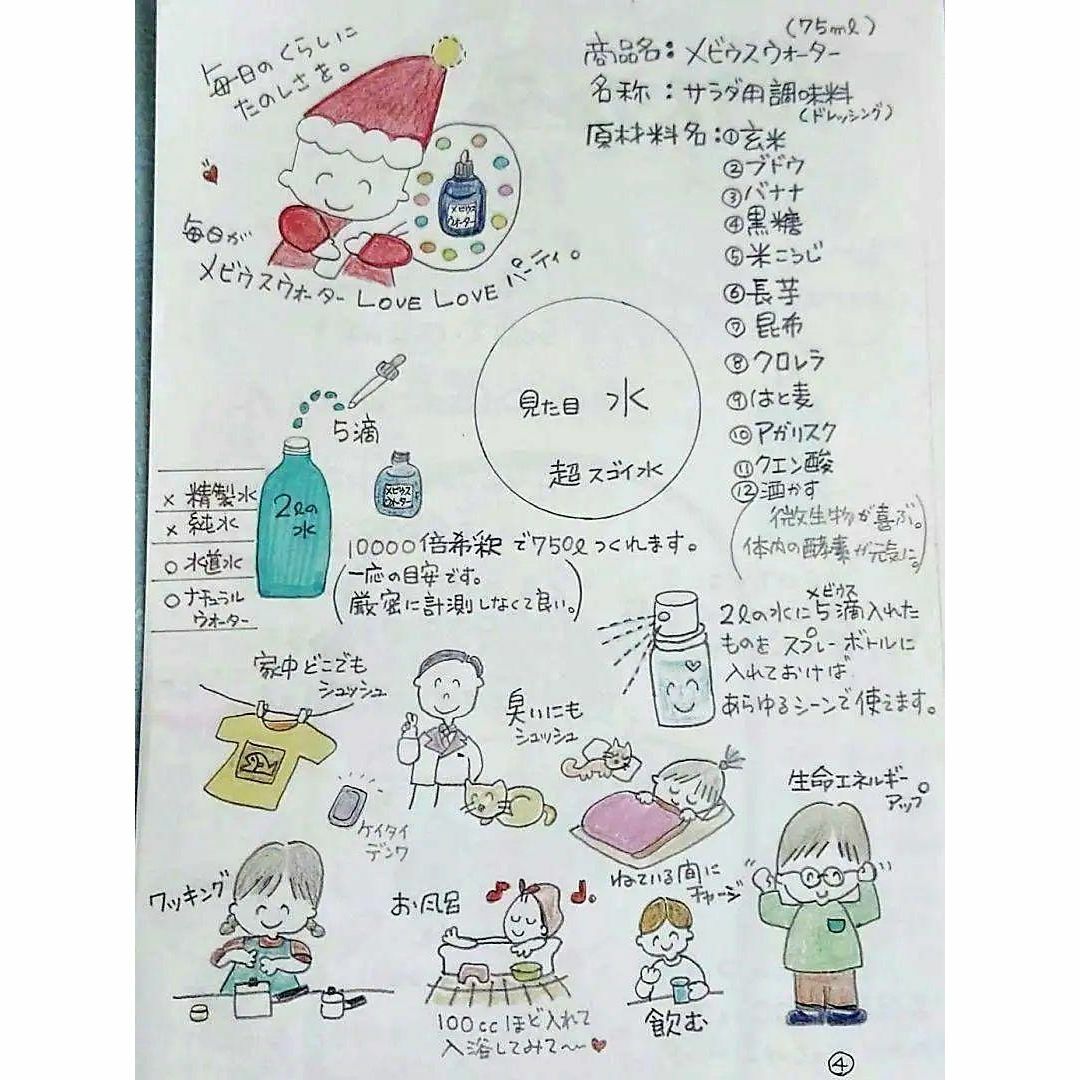 毎日のくらしに
たのしさを。
(75ml)
商品名：メビウスウォーター
名称：サラダ用調味料
(ドレッシング)
原材料名：①玄米
②ブドウ
③バナナ
④黒糖
⑤米こうじ
⑥長芋
⑦昆布
⑧クロレラ
⑨はと麦
⑩アガリスク
⑪クエン酸
⑫酒かす
(微生物が喜ぶ。
体内の酵素が元気に。)
メビウス
ウォーター
毎日が
メビウスウォーター LOVE LOVE パーティ。
見た目 水
超スゴイ水
5滴
メビウス
ウォーター
2lの
水
×精製水
×純水
○水道水
○ナチュラル
ウォーター
10000倍希釈で750lつくれます。
(一応の目安です。
厳密に計測しなくて良い。)
メビウス
2lの水に5滴入れた
ものをスプレーボトルに
入れておけば
あらゆるシーンで使てます。
家中どこでも
シュッシュ
臭いにも
シュッシュ
ケイタイ
デンワ
ねている間に
チャージ
生命エネルギー
アップ。
ワッキング
お風呂
100ccほど入れて
入浴してみて〜♥
飲む
④